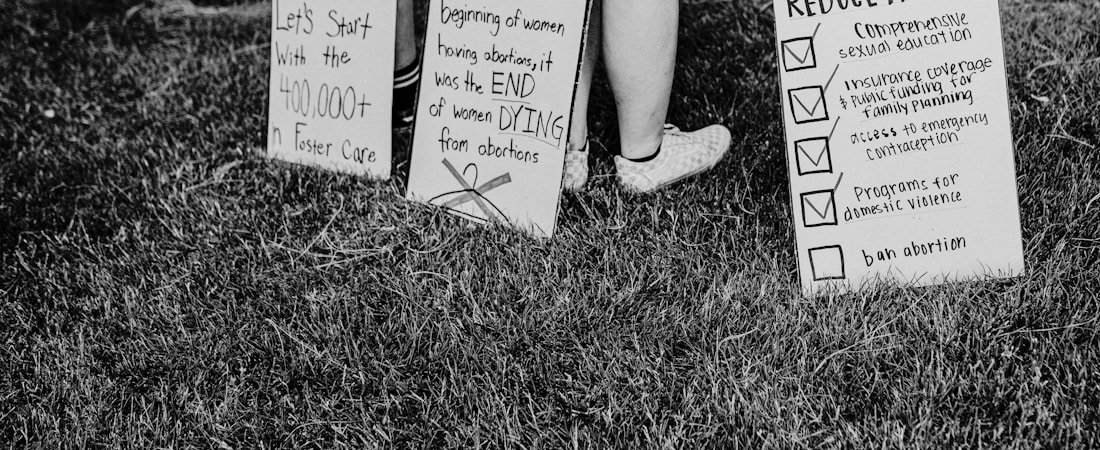 Let's Start
With the
400,000+
n Foster Care
beginning of women
having abortions, it
was the END
of women DYING
from abortions
REDUCE
Comprehensive
sexual education
insurance coverage
& Public funding for
family planning
access to emergency
contraception
Programs for
domestic violence
ban abortion